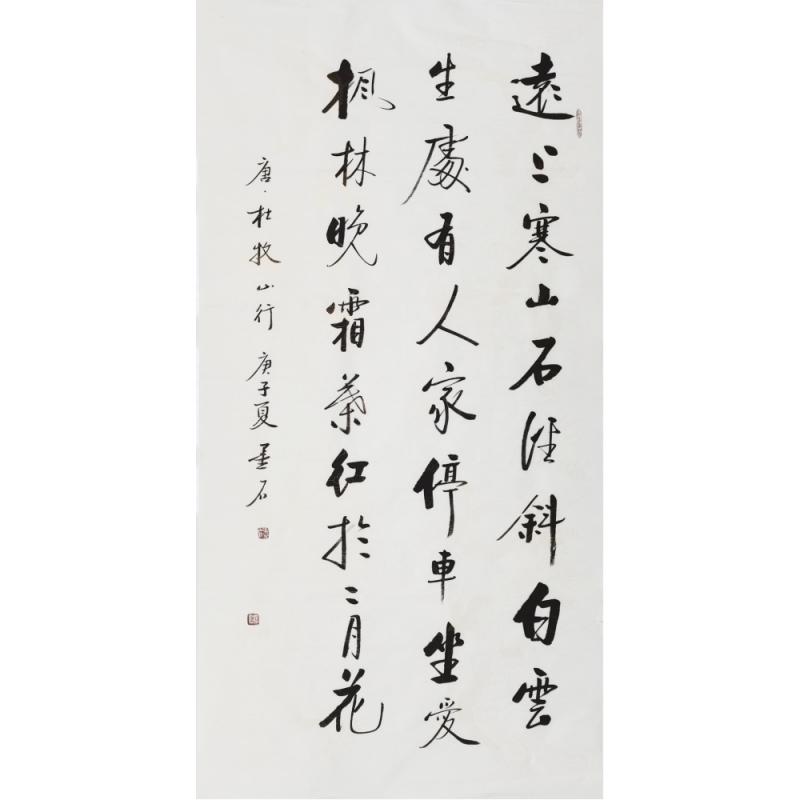 遠上寒山石徑斜白雲
生處有人家停車坐愛
楓林晚霜葉紅於二月花
唐·杜牧山行 庚子夏 墨石